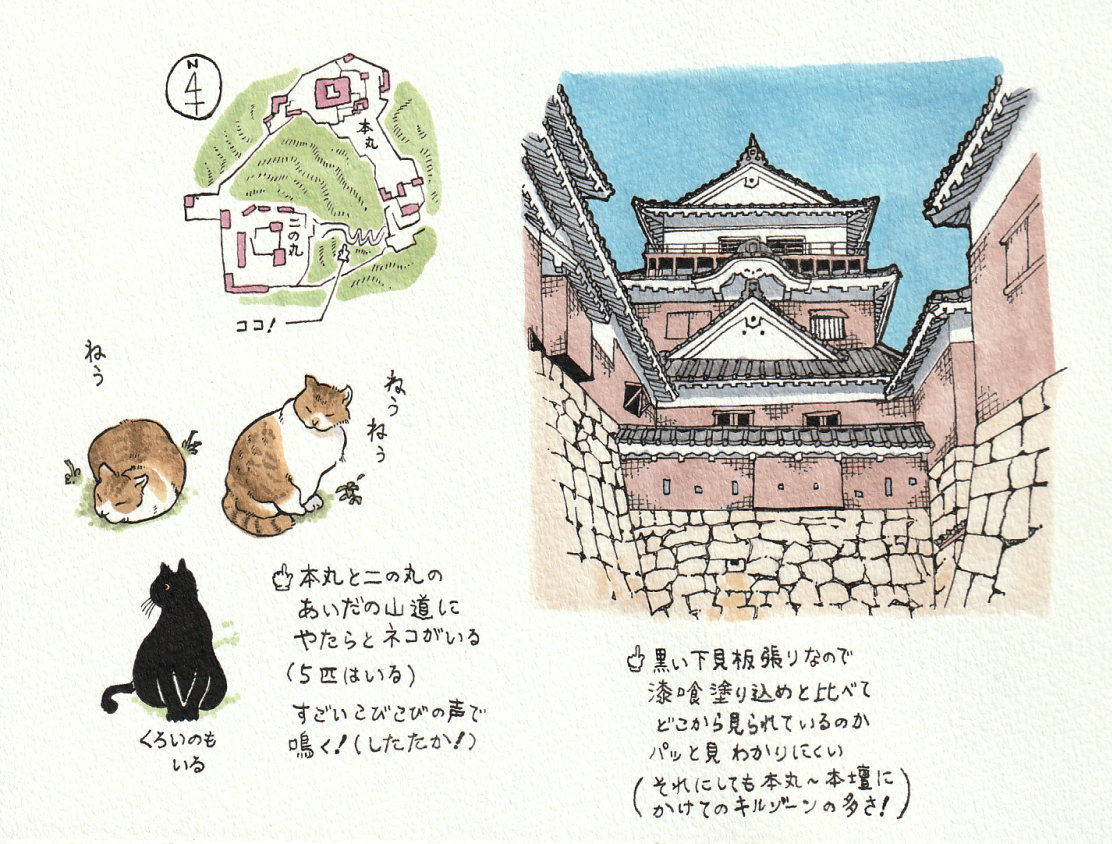 N
本丸
二の丸
ココ!
ねぅ
ねぅ
ねぅ
くろいのも
いる
本丸と二の丸の
あいだの山道に
やたらとネコがいる
(5匹はいる)
すごいこびこびの声で
鳴く!(したたか!)
黒い下見板張りなので
漆喰塗り込めと比べて
どこから見られているのか
パッと見わかりにくい
(それにしても本丸～本壇に
かけてのキルゾーンの多さ!)